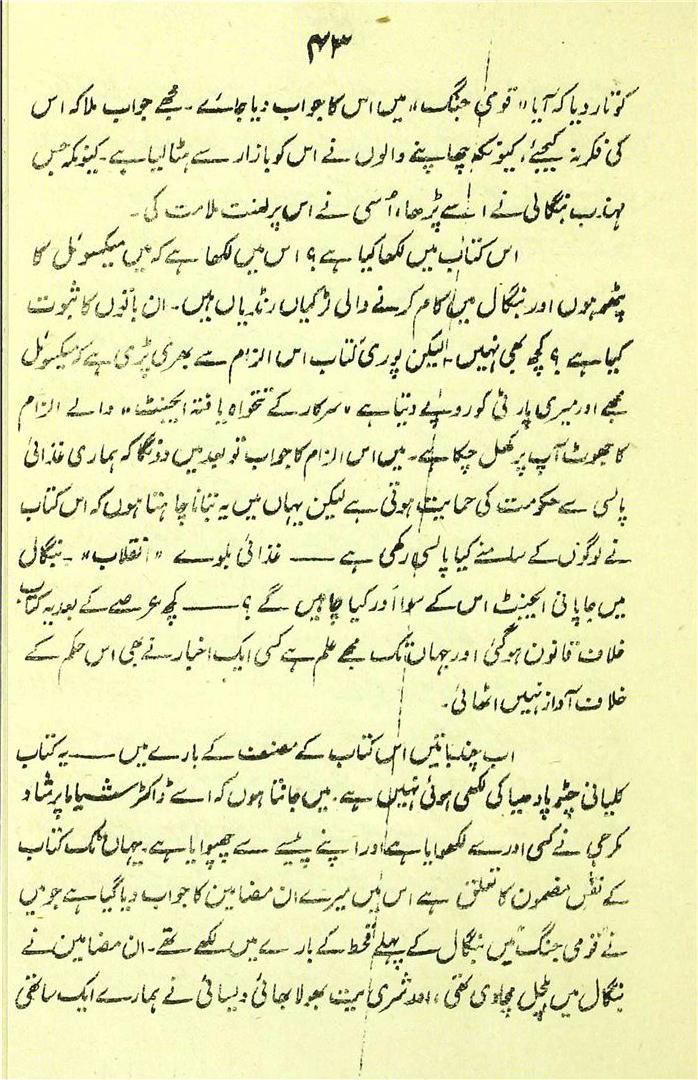 ۴۳
کو تار دیا کہ آیا "قومی جنگ" میں اس کا جواب دیا جائے۔ مجھے جواب ملا کہ اس
کی فکر نہ کیجئے، کیونکہ چھاپنے والوں نے اس کو بازار سے ہٹا لیا ہے۔ کیونکہ جس
مہذب بنگالی نے اسے پڑھا، اُسی نے اس پر لعنت ملامت کی۔
اس کتاب میں لکھا کیا ہے؟ اس میں لکھا ہے کہ میں میکسوئل کا
پٹھو ہوں اور بنگال میں کام کرنے والی لڑکیاں رنڈیاں ہیں۔ ان باتوں کا ثبوت
کیا ہے؟ کچھ بھی نہیں۔ لیکن پوری کتاب اس الزام سے بھری پڑی ہے کہ میکسوئل
مجھے اور میری پارٹی کو روپے دیتا ہے "سرکار کے تنخواہ یافتہ ایجینٹ" والے الزام
کا جھوٹ آپ پر کھل چکا ہے۔ میں اس الزام کا جواب تو بعد میں دونگا کہ ہماری غذائی
پالسی سے حکومت کی حمایت ہوتی ہے لیکن یہاں میں یہ بتانا چاہتا ہوں کہ اس کتاب
نے لوگوں کے سامنے کیا پالسی رکھی ہے —— غذائی بلوے "انقلاب"۔ بنگال
میں جاپانی ایجنٹ اس کے سوا اور کیا چاہیں گے؟ —— کچھ عرصے کے بعد یہ کتاب
خلاف قانون ہوگئی اور جہاں تک مجھے علم ہے کسی ایک اخبار نے بھی اس حکم کے
خلاف آواز نہیں اٹھائی۔
اب چند باتیں اس کتاب کے مصنف کے بارے میں —— یہ کتاب
کلیانی چٹوپادھیا کی لکھی ہوئی نہیں ہے۔ میں جانتا ہوں کہ اسے ڈاکٹر شیاما پرشاد
مکرجی نے کسی اور سے لکھوایا ہے اور اپنے پیسے سے چھپوایا ہے۔ یہاں تک کتاب
کے نفس مضمون کا تعلق ہے اس میں میرے ان مضامین کا جواب دیا گیا ہے جو میں
نے "قومی جنگ" میں بنگال کے پہلے قحط کے بارے میں لکھے تھے۔ ان مضامین نے
بنگال میں ہلچل مچا دی تھی، اور شری بھولا بھائی ڈیسائی نے ہمارے ایک ساتھی